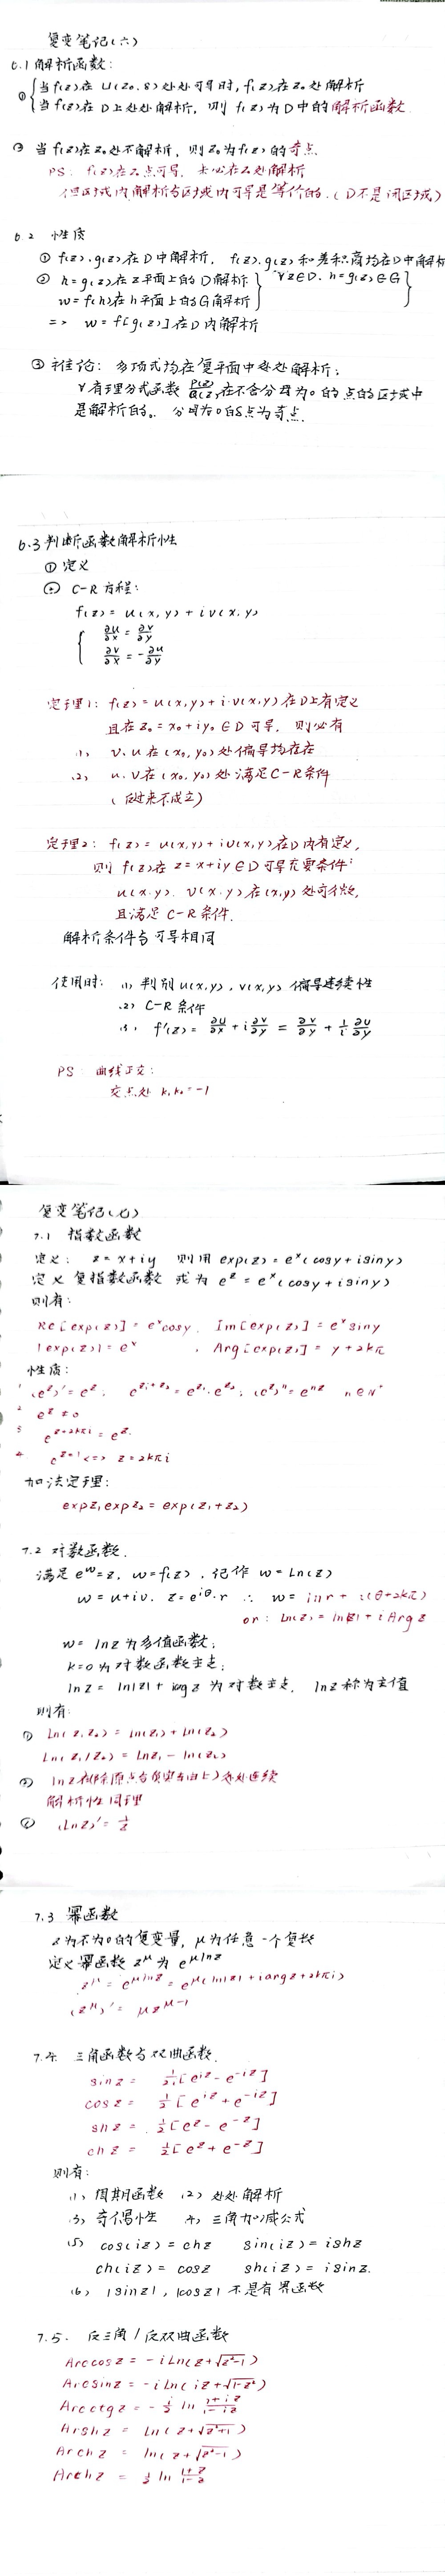 复变笔记(六)
6.1 解析函数:
① { 当f(z)在 U(z₀.δ)处处可导时, f(z)在z₀处解析
当f(z)在D上处处解析, 则f(z)为D中的解析函数.
② 当f(z)在z₀处不解析, 则z₀为f(z)的奇点
PS: f(z)在z₀点可导, 未必在z₀处解析
但区域内解析与区域内可导是等价的.(D不是闭区域)
6.2 性质
① f(z).g(z)在D中解析, f(z).g(z)和差积商均在D中解析
② h=g(z)在z平面上的D解析 } ∀z∈D. h=g(z)∈G }
w=f(h)在h平面上的G解析
=> w=f[g(z)]在D内解析
③ 推论: 多项式均在复平面中处处解析;
∀有理分式函数 P(z)/Q(z) 在不含分母为0的点的区域中
是解析的。 分母为0的点为奇点.
6.3 判断函数解析性
① 定义
② C-R方程:
f(z)=u(x,y)+iv(x,y)
{ ∂u/∂x = ∂v/∂y
∂v/∂x = -∂u/∂y
定理1: f(z)=u(x,y)+i·v(x,y)在D上有定义
且在z₀=x₀+iy₀∈D可导, 则必有
(1) v.u在(x₀,y₀)处偏导均存在
(2) u.v在(x₀,y₀)处满足C-R条件
(反过来不成立)
定理2: f(z)=u(x,y)+iv(x,y)在D内有定义,
则f(z)在z=x+iy∈D可导充要条件:
u(x,y). v(x,y)在(x,y)处可微,
且满足C-R条件.
解析条件与可导相同
使用时: (1) 判别u(x,y),v(x,y)偏导连续性
(2) C-R条件
(3) f'(z)= ∂u/∂x + i∂v/∂y = ∂v/∂y + 1/i ∂u/∂y
PS: 曲线正交:
交点处 k₁k₂=-1
复变笔记(七)
7.1 指数函数
定义: z=x+iy 则用exp(z)=eˣ(cosy+isiny)
定义复指数函数 或为 eᶻ=eˣ(cosy+isiny)
则有:
Re[exp(z)]=eˣcosy. Im[exp(z)]=eˣsiny
|exp(z)|=eˣ , Arg[exp(z)]=y+2kπ
性质:
1 (eᶻ)'=eᶻ; e^(z₁+z₂)=e^z₁·e^z₂; (eᶻ)ⁿ=e^(nz) n∈N⁺
2 eᶻ≠0
3 e^(z+2kπi)=eᶻ
4 eᶻ=1<=> z=2kπi
加法定理:
expz₁expz₂=exp(z₁+z₂)
7.2 对数函数.
满足e^w=z, w=f(z), 记作w=Ln(z)
w=u+iv. z=e^(iθ)·r ∴ w=lnr+i(θ+2kπ)
or: Ln(z)=ln|z|+iArgz
w=lnz为多值函数;
k=0为对数函数主支;
lnz=ln|z|+iargz为对数主支, lnz称为主值
则有:
① Ln(z₁z₂)=ln(z₁)+ln(z₂)
Ln(z₁/z₂)=Lnz₁-ln(z₂)
② lnz(除原点与负实轴上)处处连续
解析性同理
③ (Lnz)'=1/z
7.3 幂函数
z为不为0的复变量, μ为任意一个复数
定义幂函数z^μ为e^(μlnz)
z^μ=e^(μlnz)=e^(μ(ln|z|+iargz+2kπi))
(z^μ)'=μz^(μ-1)
7.4. 三角函数与双曲函数.
sinz= 1/2i[e^(iz)-e^(-iz)]
cosz= 1/2[e^(iz)+e^(-iz)]
shz= 1/2[e^z-e^(-z)]
chz= 1/2[e^z+e^(-z)]
则有:
(1) 周期函数 (2) 处处解析
(3) 奇偶性 (4) 三角加减公式
(5) cos(iz)=chz sin(iz)=ishz
ch(iz)=cosz sh(iz)=isinz.
(6) |sinz|, |cosz|不是有界函数
7.5. 反三角/反双曲函数
Arccosz=-iLn(z+√(z²-1))
Arcsinz=-iLn(iz+√(1-z²))
Arcctgz=-i/2 ln (1+iz)/(1-iz)
Arshz = Ln(z+√(z²+1))
Archz = ln(z+√(z²-1))
Arthz = 1/2 ln (1+z)/(1-z)